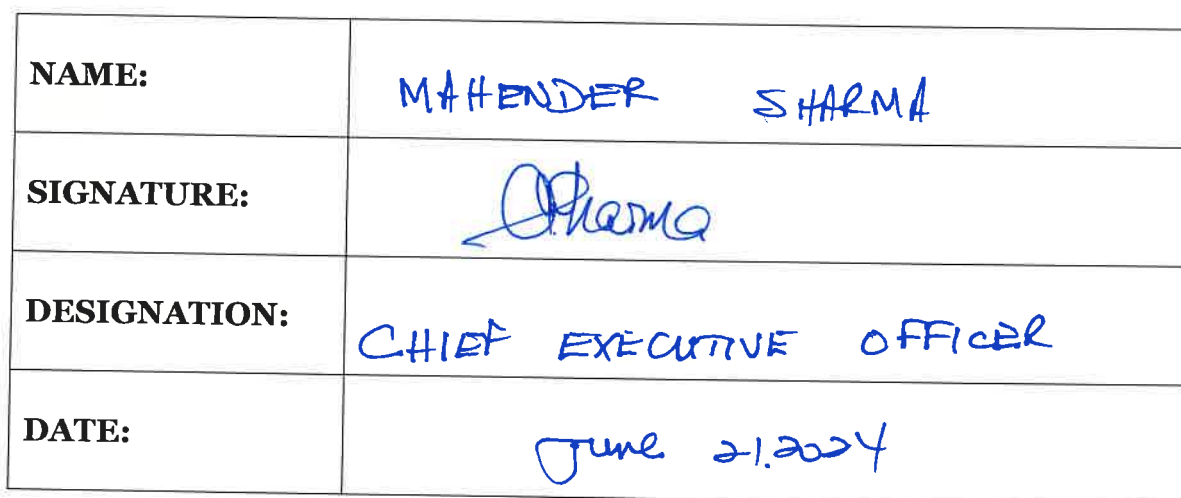 NAME: MAHENDER SHARMA
SIGNATURE: Sharma
DESIGNATION: CHIEF EXECUTIVE OFFICER
DATE: June 21.2024